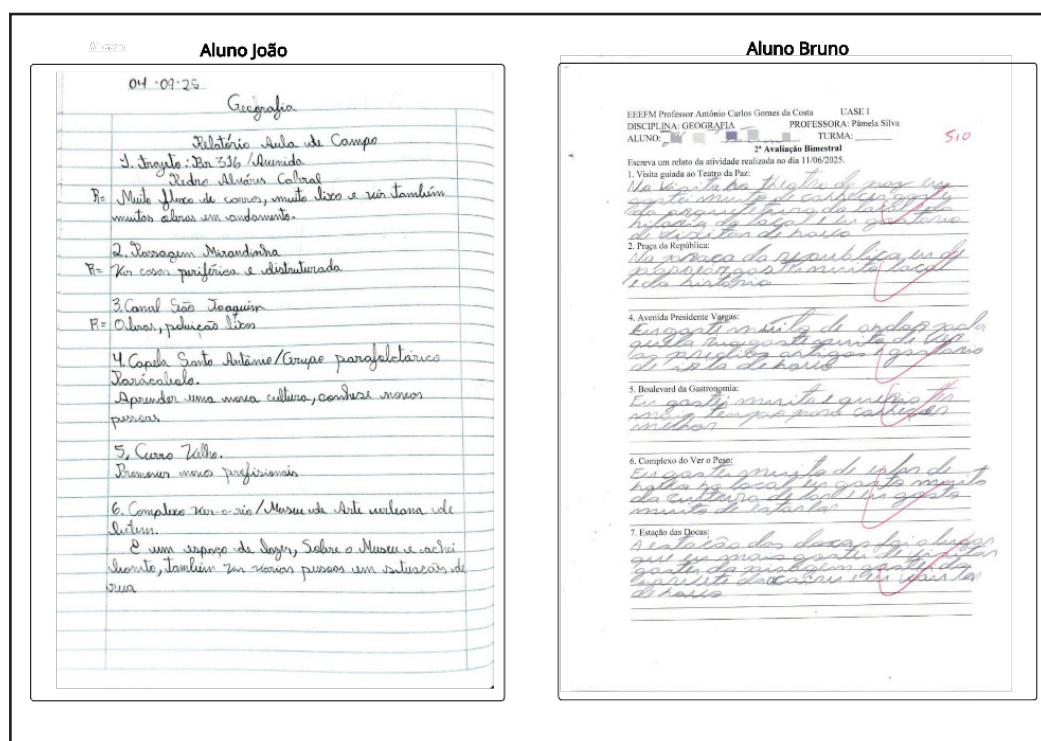 Aluno João
04-09-25
Geografia
Relatório Aula de Campo
1. Trajeto: Br 316 / Avenida
Pedro Alváres Cabral
R= Muito fluxo de carros, muito lixo e também
muitas obras em andamento.
2. Passagem Mirandinha
R= Ver casas periférica e distruturada
3. Canal São Joaquim
R= Obras, poluição lixos
4. Capela Santo Antônio / Grupo parafolclórico
Aprender uma nova cultura, conhese novos
pessoas
5. Curro Velho.
Promover novos profissionais
6. Complexo Ver-o-rio / Museu de Arte urbana de
Belém.
É um espaço de lazer, Sobre o Museu e achei
bonito, também várias pessoas em situação de
rua
Aluno Bruno
EEEFM Professor Antônio Carlos Gomes da Costa UASE I
DISCIPLINA: GEOGRAFIA PROFESSORA: Pâmela Silva
ALUNO: TURMA:
5,0
2ª Avaliação Bimestral
Escreva um relato da atividade realizada no dia 11/06/2025.
1. Visita guiada ao Teatro da Paz:
Na visita ao theatro da paz eu
gostei muito de conhecer
da arquitetura do local
historia do local e eu gostaria
de visitar de novo
2. Praça da República:
Na praça da republica eu
passear gostei muito local
e da história
4. Avenida Presidente Vargas:
Eu gostei muito de andar pela
quela rua gostei muito de ver
as predios antigos e gostario
de de novo
5. Boulevard da Gastronomia:
Eu gostei muito e queria ter
mais tempo para conhecer
melhor
6. Complexo do Ver o Peso:
Eu gostei muito de
no local eu gosto muito
da cultura de e eu gosto
muito de
7. Estação das Docas:
A estação das docas foi o lugar
que eu mais gostei de visitar
gostei da paisagem gostei do
de novo